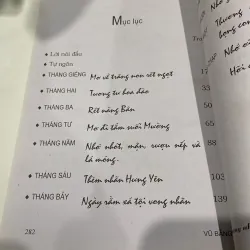 Mục lục
♦ Lời nói đầu
♦ Tự ngôn
♦ THÁNG GIÊNG Mơ về trăng non rét ngọt 17
♦ THÁNG HAI Tương tư hoa đào 32
♦ THÁNG BA Rét nàng Bân 50
♦ THÁNG TƯ Mơ đi tắm suối Mường 65
♦ THÁNG NĂM Nhớ nhót, mận, rượu nếp và lá móng. 88
♦ THÁNG SÁU Thèm nhãn Hưng Yên 103
♦ THÁNG BẢY Ngày rằm xá tội vong nhân 139
282
VŨ BẰNG